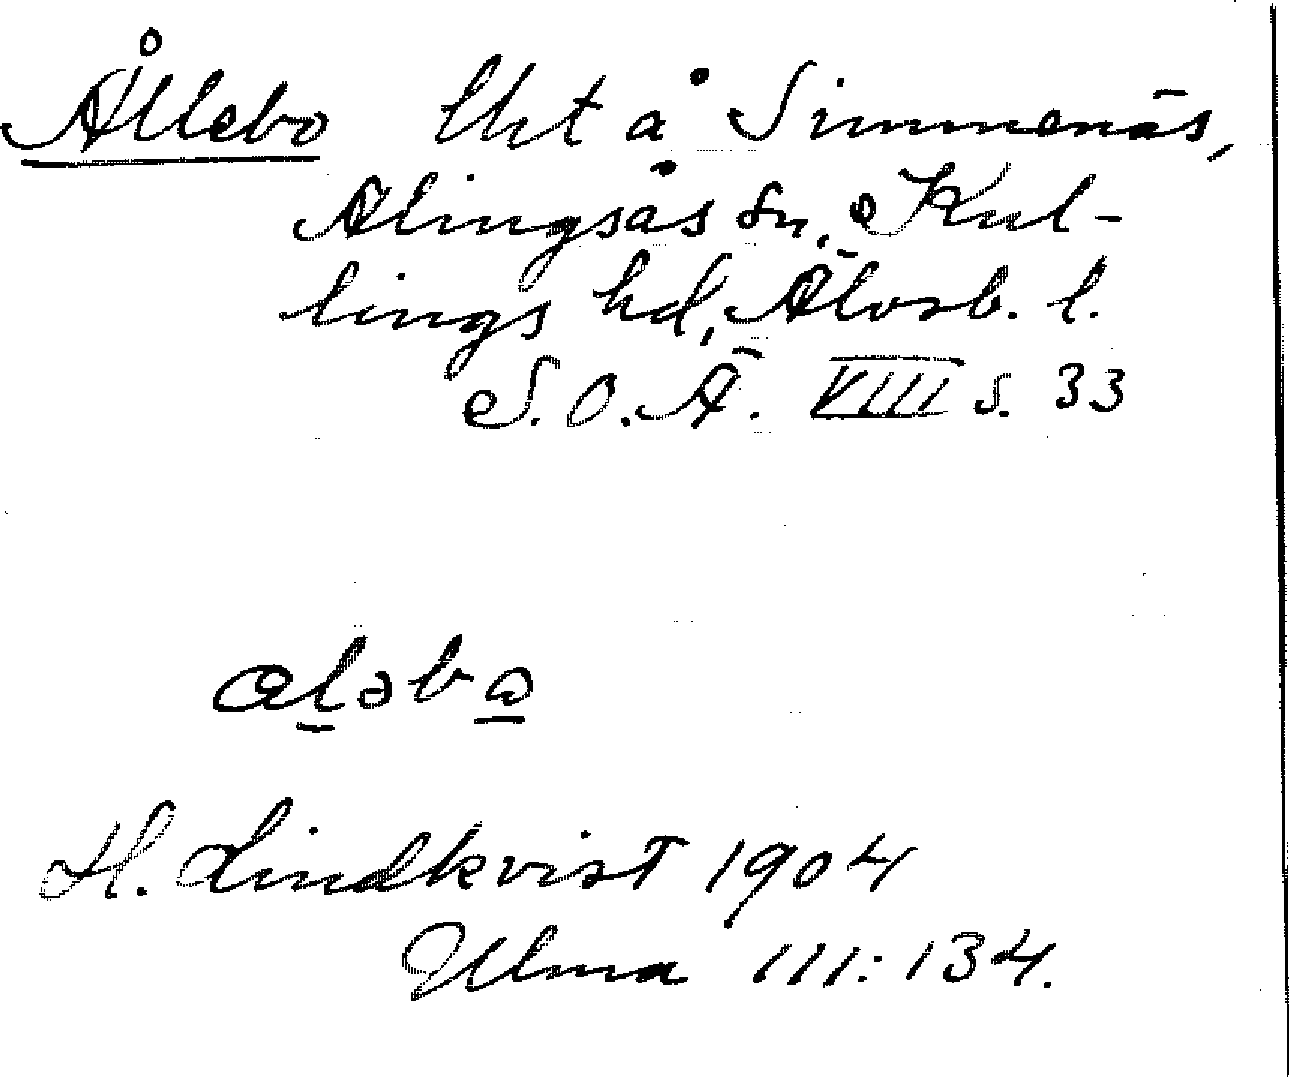 Ållebo lht å Simmenäs,
Alingsås sn, Kul-
lings hd, Älvsb. l.
S.O.Ä. VIII s. 33
ɑl̠əbɷ̠
H. Lindkvist 1904
Ulma 111:134.